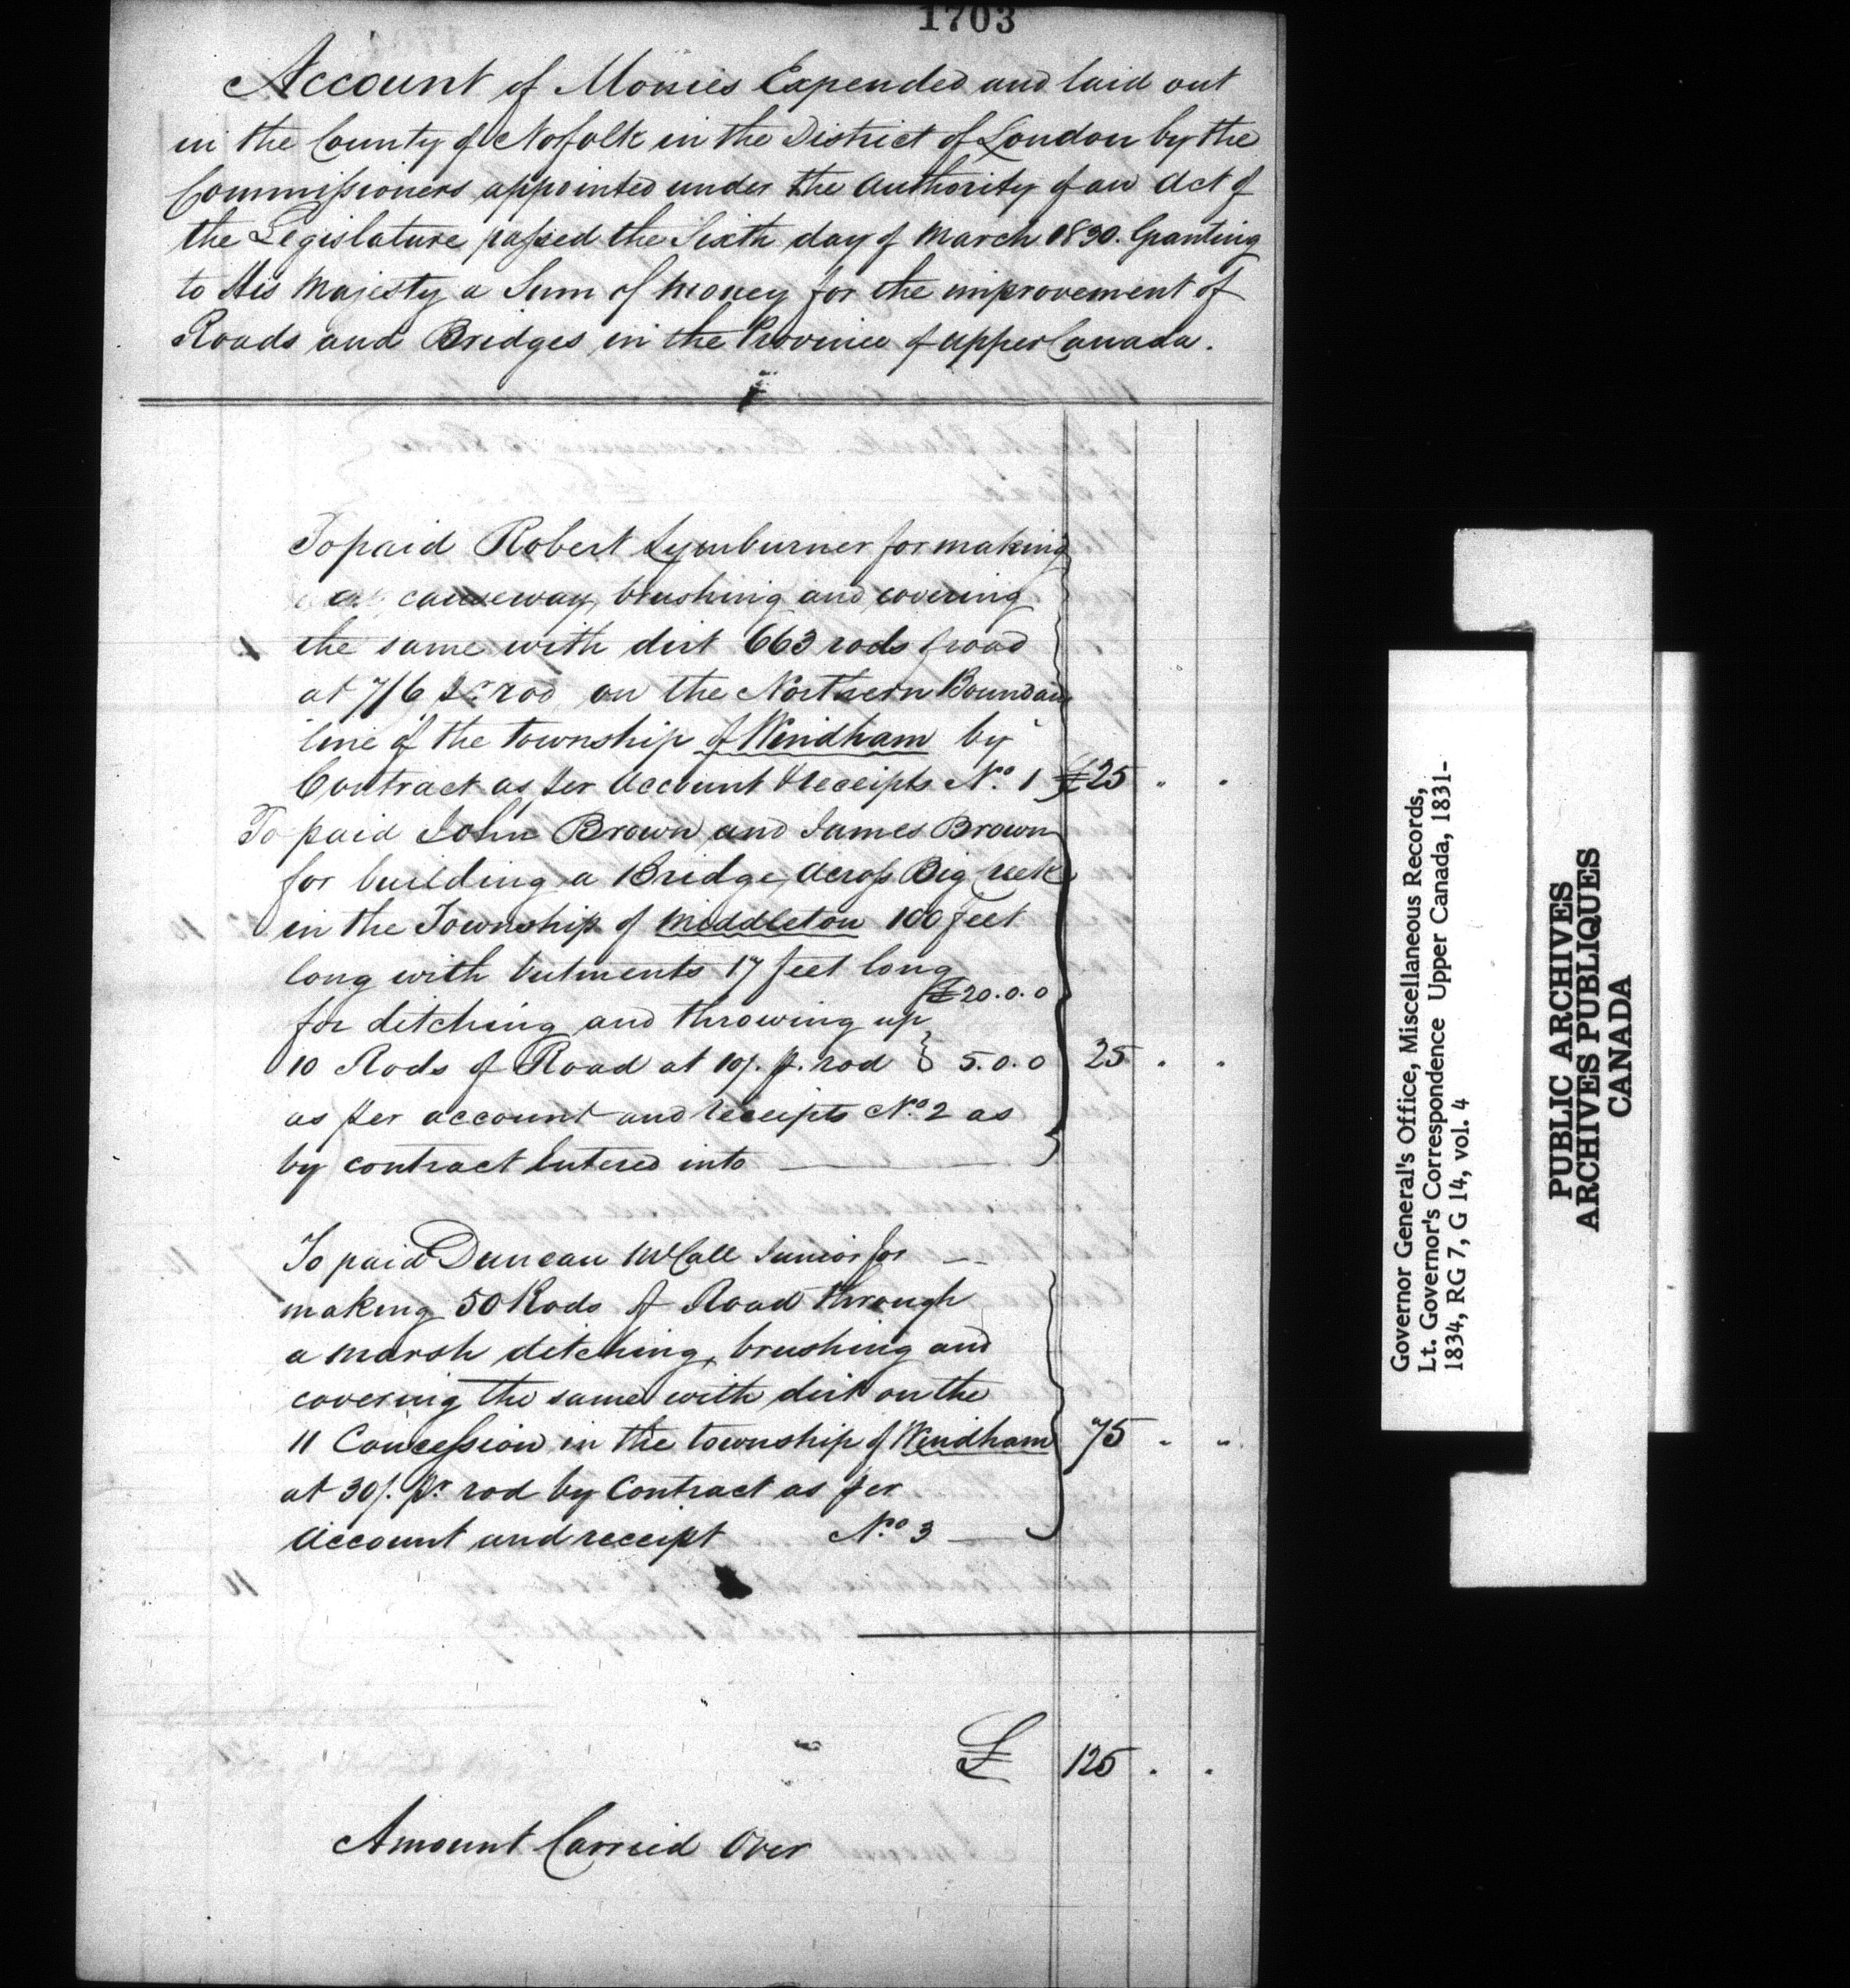 1703
Account of Monies Expended and laid out
in the County of Norfolk in the District of London by the
Commissioners appointed under the Authority of an Act of
the Legislature passed the Sixth day of March 1830. Granting
to His Majesty a Sum of Money for the improvement of
Roads and Bridges in the Province of Upper Canada.
To paid Robert Lymburner for making
causeway, brushing and covering
the same with dirt 663 rods of road
at 7/6 pr rod on the Northern Boundary
line of the Township of Windham by
Contract as per Account & receipts No. 1 £25 . .
To paid John Brown and James Brown
for building a Bridge, across Big Creek
in the Township of Middleton 100 feet
long with butments 17 feet long
£20.0.0
for ditching and throwing up
10 Rods of Road at 10/. p. rod } 5.0.0 25 . .
as per account and receipts No. 2 as
by contract entered into
To paid Duncan McCall Junior for
making 50 Rods of Road through
a marsh ditching, brushing and
covering the same with dirt on the
11 Concession in the township of Windham 75 . .
at 30/. pr. rod by Contract as per
Account and receipt No. 3
£ 125 . .
Amount Carried Over
Governor General's Office, Miscellaneous Records,
Lt. Governor's Correspondence Upper Canada, 1831-
1834, RG 7, G 14, vol. 4
PUBLIC ARCHIVES
ARCHIVES PUBLIQUES
CANADA